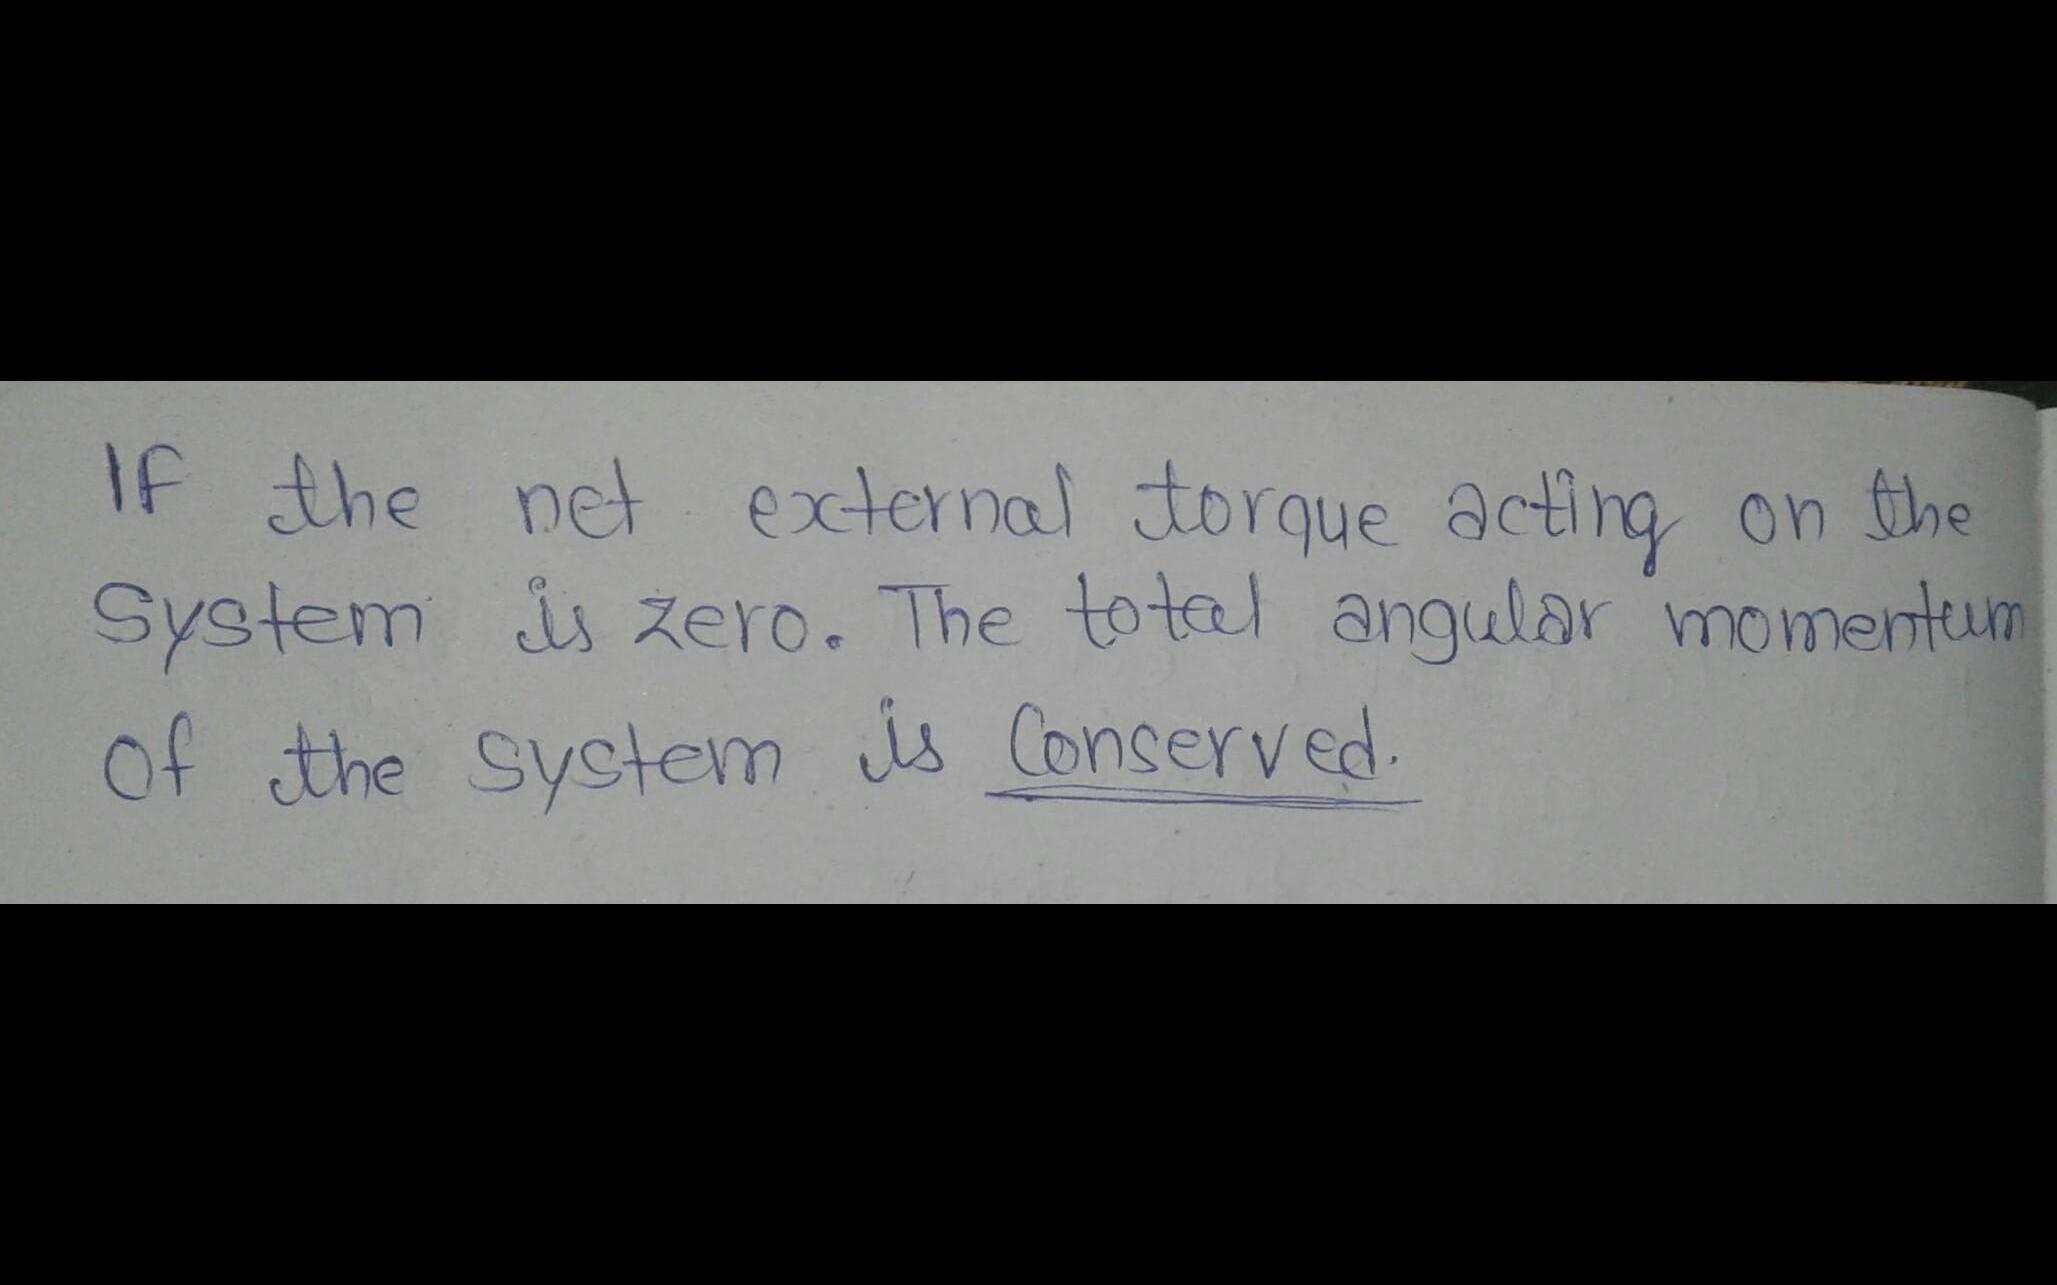 If the net external torque acting on the
System is zero. The total angular momentum
Of the system is Conserved.